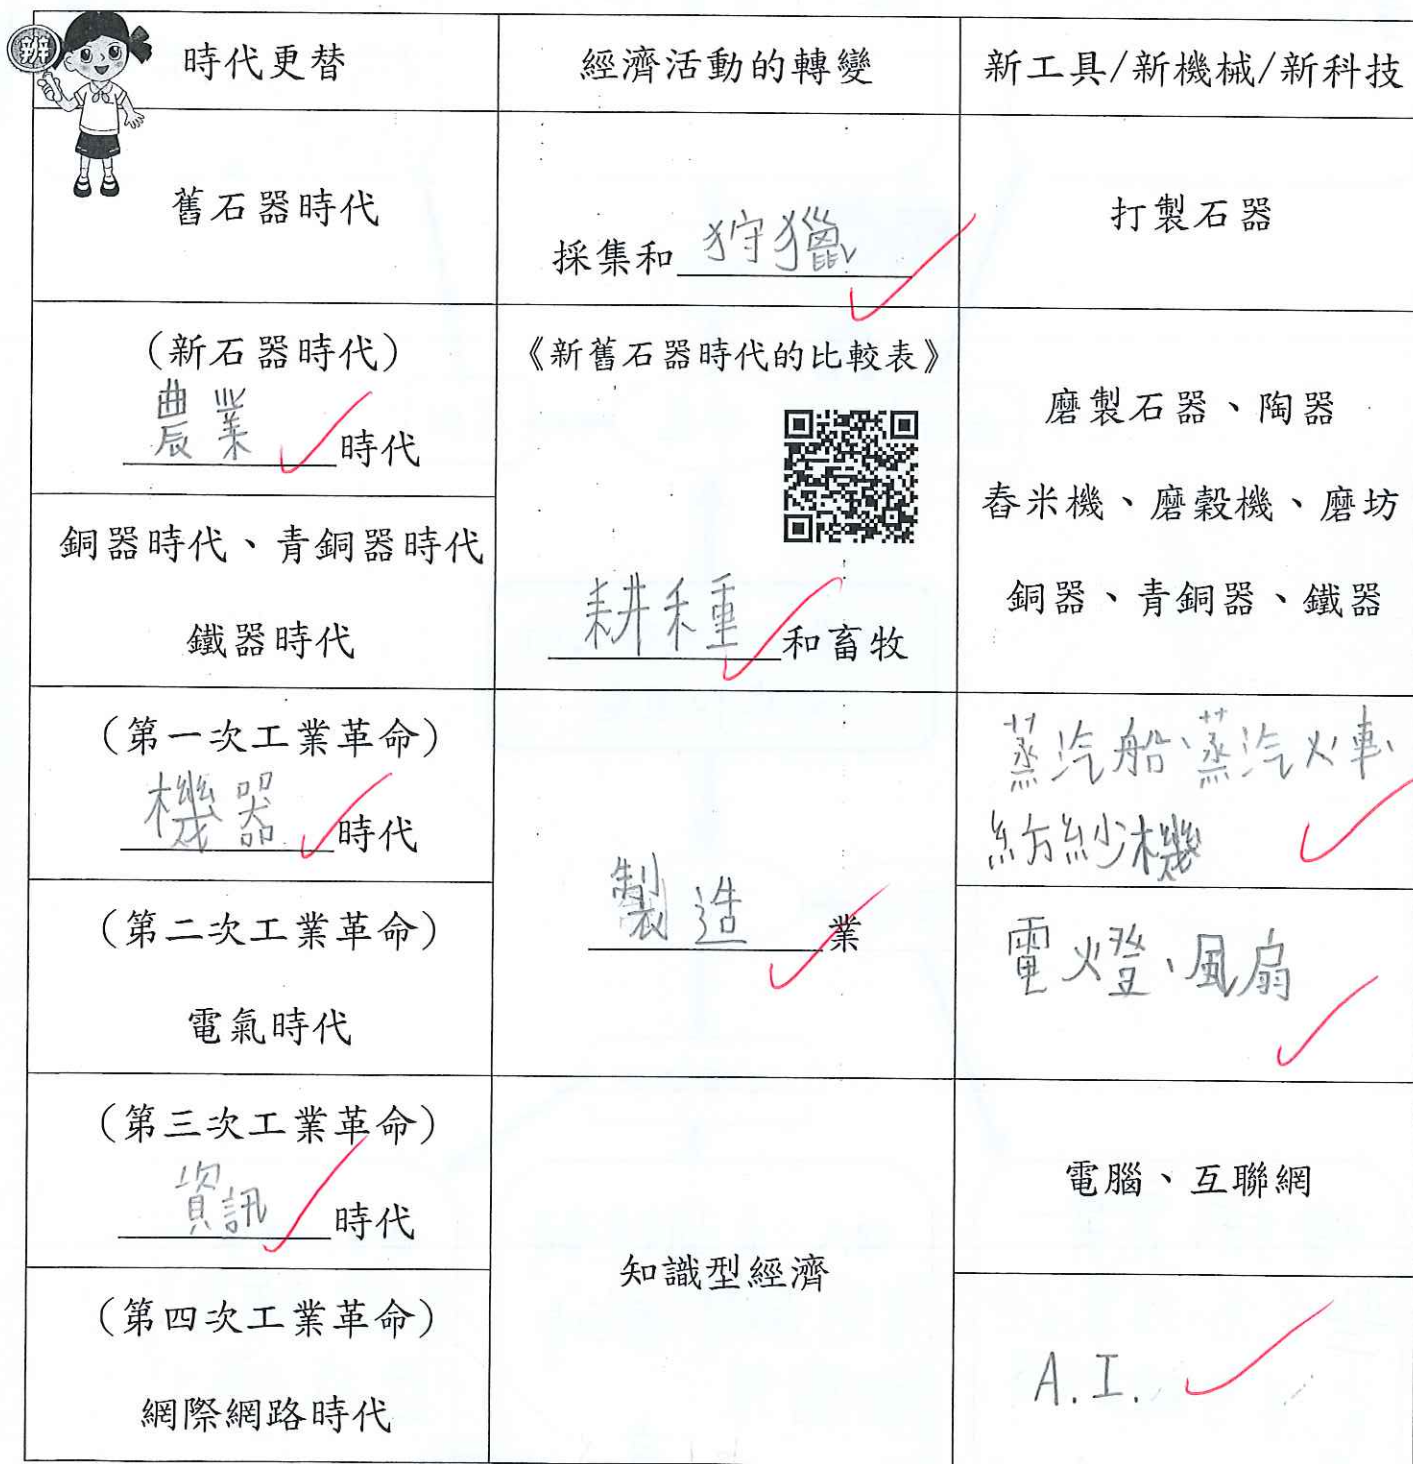 辨
時代更替
經濟活動的轉變
新工具/新機械/新科技
舊石器時代
採集和狩獵
打製石器
(新石器時代)
農業時代
《新舊石器時代的比較表》
磨製石器、陶器
舂米機、磨穀機、磨坊
銅器、青銅器、鐵器
銅器時代、青銅器時代
鐵器時代
耕種和畜牧
(第一次工業革命)
機器時代
製造業
蒸汽船、蒸汽火車、
紡紗機
(第二次工業革命)
電氣時代
電燈、風扇
(第三次工業革命)
資訊時代
知識型經濟
電腦、互聯網
(第四次工業革命)
網際網路時代
A.I.